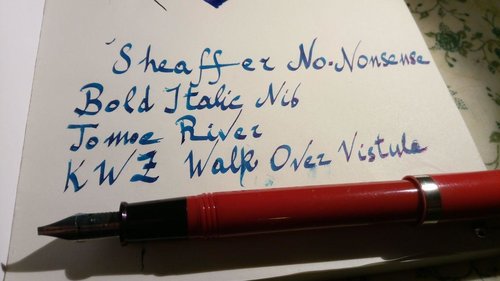 Sheaffer No-Nonsense
Bold Italic Nib
Tomoe River
KWZ Walk Over Vistula